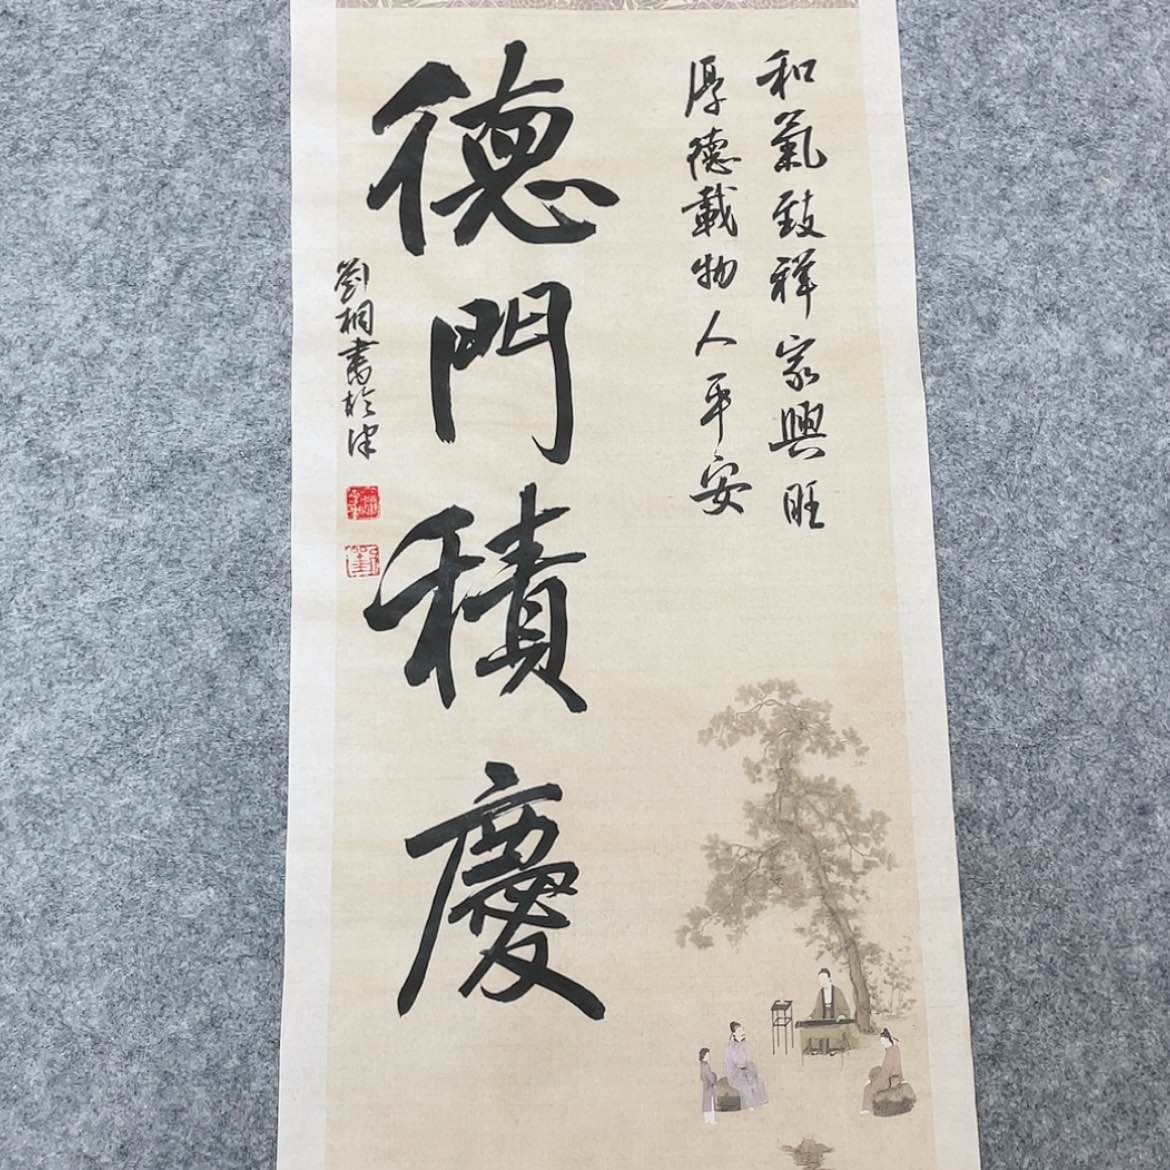 和氣致祥家興旺
厚德載物人平安
德門積慶
劉桐書於津